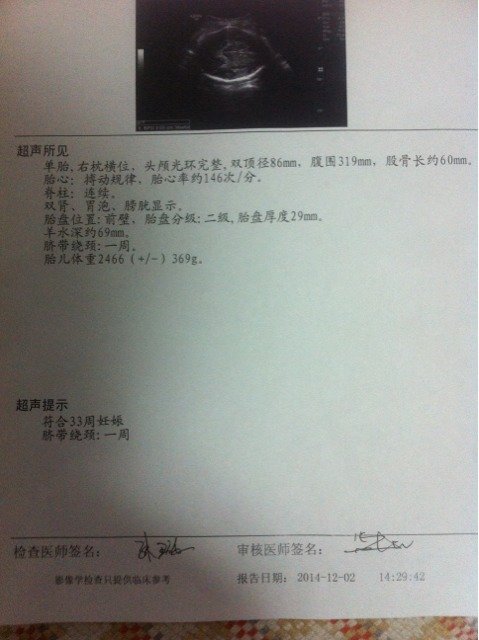 超声所见
单胎,右枕横位、头颅光环完整,双顶径86mm,腹围319mm,股骨长约60mm。
胎心:搏动规律、胎心率约146次/分。
脊柱:连续。
双肾、胃泡、膀胱显示。
胎盘位置:前壁,胎盘分级:二级,胎盘厚度29mm。
羊水深约69mm。
脐带绕颈:一周。
胎儿体重2466(+/-)369g。
超声提示
符合33周妊娠
脐带绕颈:一周
检查医师签名: 审核医师签名:
影像学检查只提供临床参考 报告日期: 2014-12-02 14:29:42